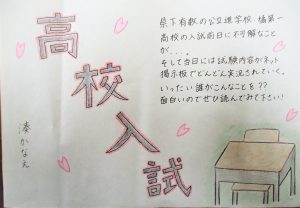 高校入試
湊かなえ
県下有数の公立進学校・橘第一
高校の入試前日に不可解なこと
が...。
そして当日には試験内容がネット
掲示板でどんどん実況されていく。
いったい誰がこんなことを??
面白いのでぜひ読んでみて下さい!